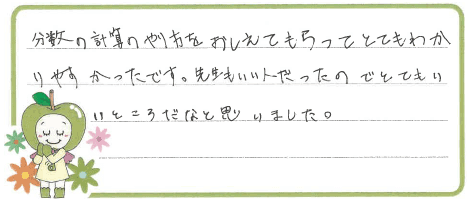 分数の計算のやり方をおしえてもらってとてもわか
りやすかったです。先生もいい人だったのでとてもい
いところだなと思いました。